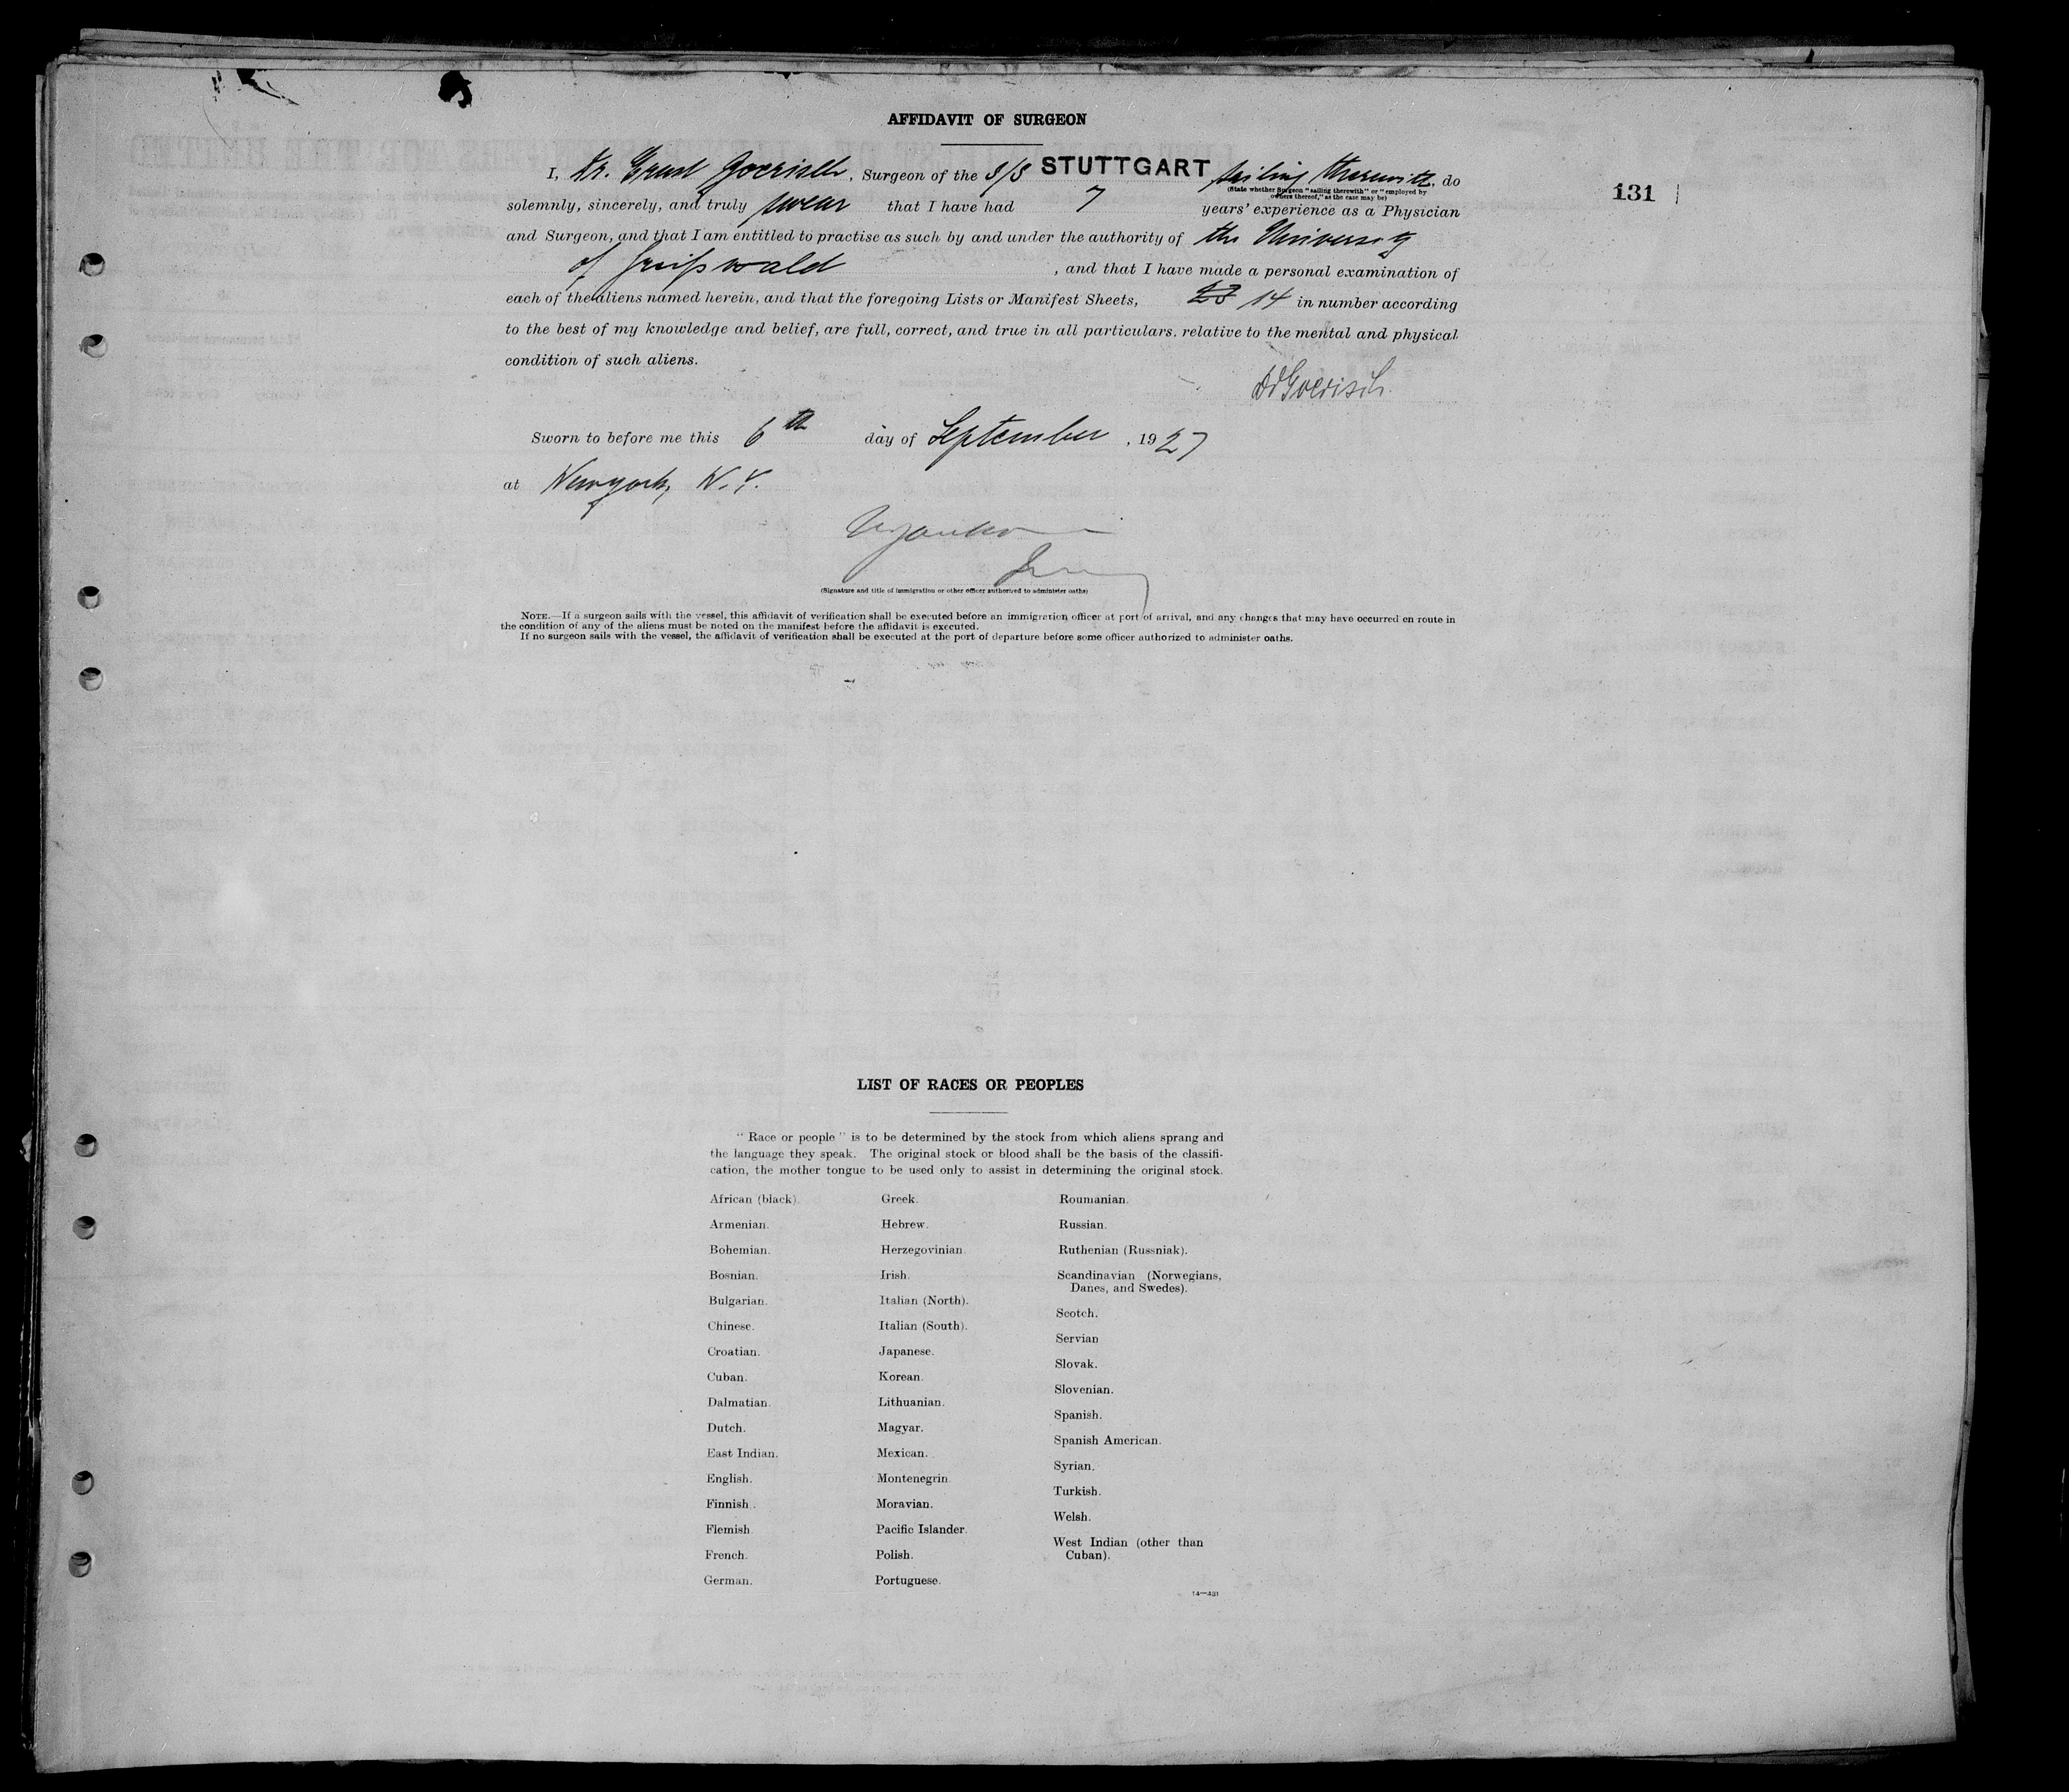 AFFIDAVIT OF SURGEON
I, Dr. Ernst Goerisch, Surgeon of the S/S STUTTGART sailing therewith, do
(State whether Surgeon "sailing therewith" or "employed by
owners thereof," as the case may be)
131
solemnly, sincerely, and truly swear that I have had 7 years' experience as a Physician
and Surgeon, and that I am entitled to practise as such by and under the authority of the University
of Greifswald, and that I have made a personal examination of
each of the aliens named herein, and that the foregoing Lists or Manifest Sheets, 14 in number according
to the best of my knowledge and belief, are full, correct, and true in all particulars, relative to the mental and physical
condition of such aliens.
Dr Goerisch.
Sworn to before me this 6th day of September, 1927
at Newyork, N.Y.
(Signature and title of immigration or other officer authorized to administer oaths)
NOTE.—If a surgeon sails with the vessel, this affidavit of verification shall be executed before an immigration officer at port of arrival, and any changes that may have occurred en route in
the condition of any of the aliens must be noted on the manifest before the affidavit is executed.
If no surgeon sails with the vessel, the affidavit of verification shall be executed at the port of departure before some officer authorized to administer oaths.
LIST OF RACES OR PEOPLES
"Race or people" is to be determined by the stock from which aliens sprang and
the language they speak. The original stock or blood shall be the basis of the classifi-
cation, the mother tongue to be used only to assist in determining the original stock.
African (black).
Armenian.
Bohemian.
Bosnian.
Bulgarian.
Chinese.
Croatian.
Cuban.
Dalmatian.
Dutch.
East Indian.
English.
Finnish.
Flemish.
French.
German.
Greek.
Hebrew.
Herzegovinian.
Irish.
Italian (North).
Italian (South).
Japanese.
Korean.
Lithuanian.
Magyar.
Mexican.
Montenegrin.
Moravian.
Pacific Islander.
Polish.
Portuguese.
Roumanian.
Russian.
Ruthenian (Russniak).
Scandinavian (Norwegians,
Danes, and Swedes).
Scotch.
Servian
Slovak.
Slovenian.
Spanish.
Spanish American.
Syrian.
Turkish.
Welsh.
West Indian (other than
Cuban).
14—431